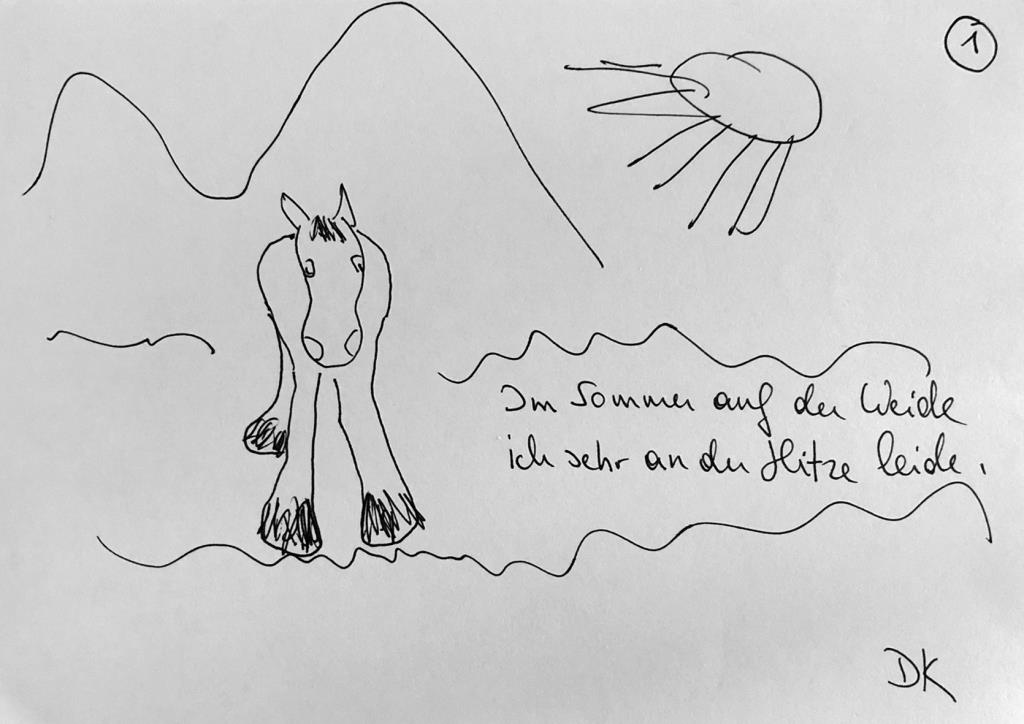 1
Im Sommer auf der Weide
ich sehr an der Hitze leide.
DK